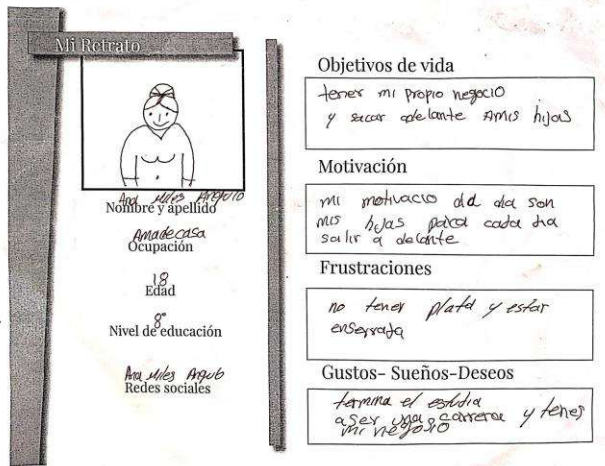 Mi Retrato
Ana Miles Angulo
Nombre y apellido
Ama de casa
Ocupación
18
Edad
8°
Nivel de educación
Ana Miles Angulo
Redes sociales
Objetivos de vida
tener mi propio negocio
y sacar adelante Amis hijas
Motivación
mi motivacio dia dia son
mis hijas para cada dia
salir a delante
Frustraciones
no tener plata y estar
enserrada
Gustos- Sueños-Deseos
termina el estudia
aser una carrera y tener
mi negosio